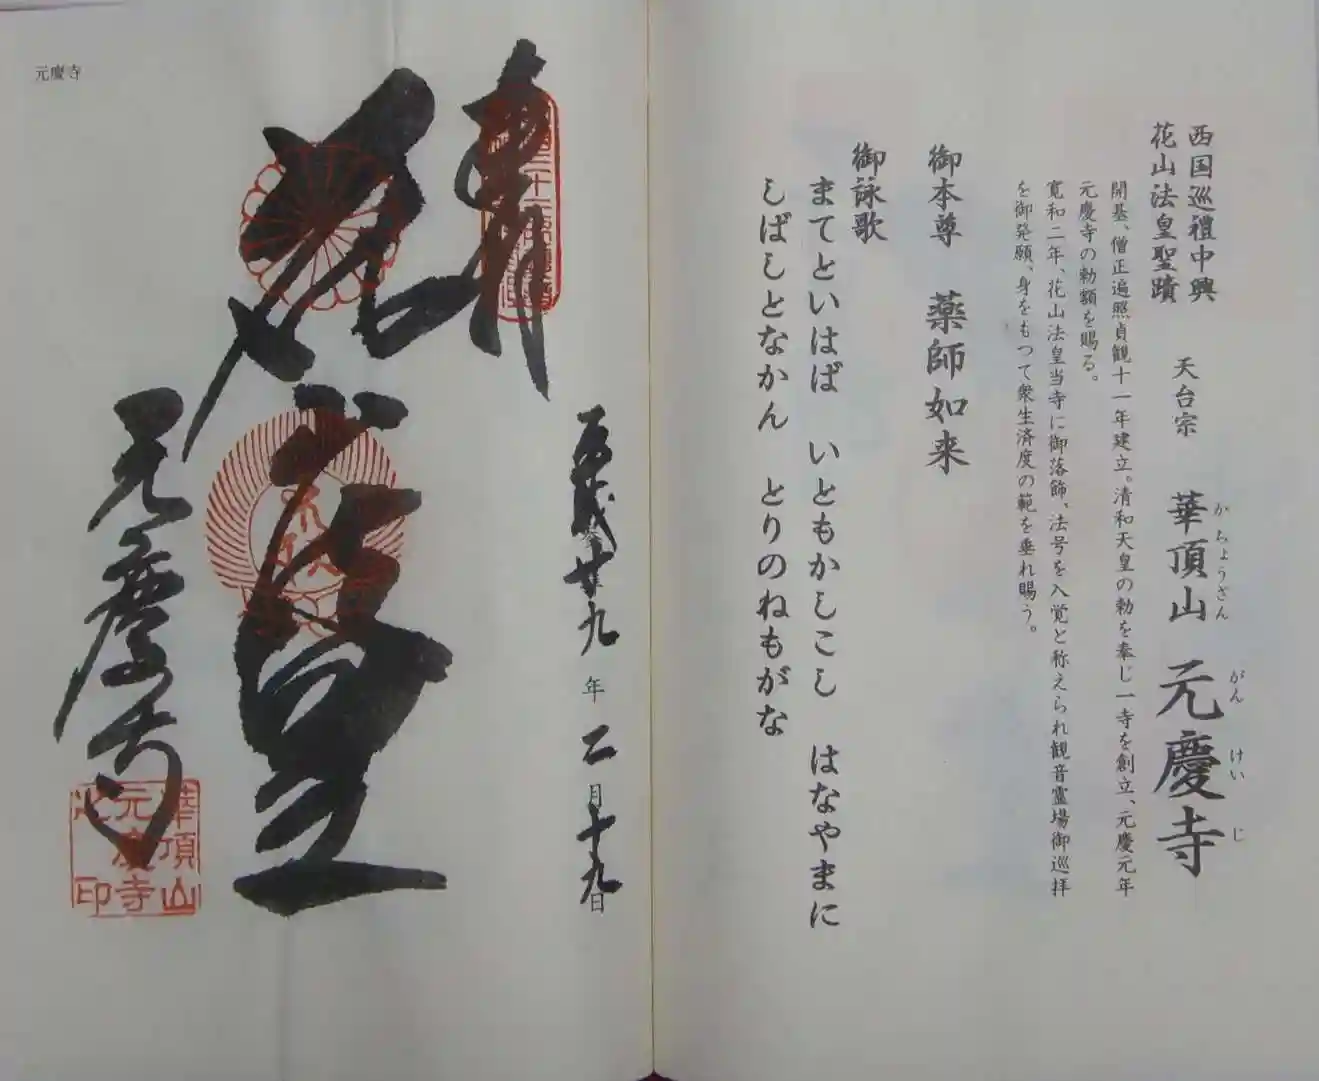 西国巡禮中興
花山法皇聖蹟
天台宗 華頂山 元慶寺
かちょうざん がんけいじ
開基、僧正遍照貞観十一年建立。清和天皇の勅を奉じ一寺を創立、元慶元年
元慶寺の勅額を賜る。
寛和二年、花山法皇当寺に御落飾、法号を入覚と称えられ観音霊場御巡拝
を御発願、身をもつて衆生済度の範を垂れ賜う。
御本尊 薬師如来
御詠歌
まてといはば いともかしこし はなやまに
しばしとなかん とりのねもがな
廿九年二月十九日
奉
元慶寺
華頂山
元慶寺
之印
元慶寺